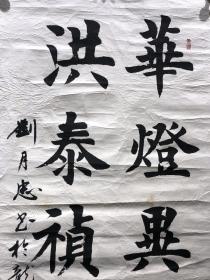 華燈異
洪泰禎
劉月忠書於龍